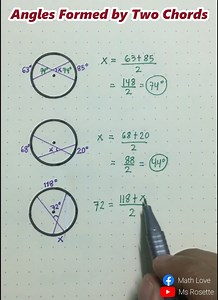 Angles Formed by Two Chords
63° 74° x 74° 85°
x = 63+85
2
= 148
2
= 74°
68° x 20°
x = 68+20
2
= 88
2
= 44°
118°
72°
x
72 = 118+x
2
Math Love
Ms Rosette